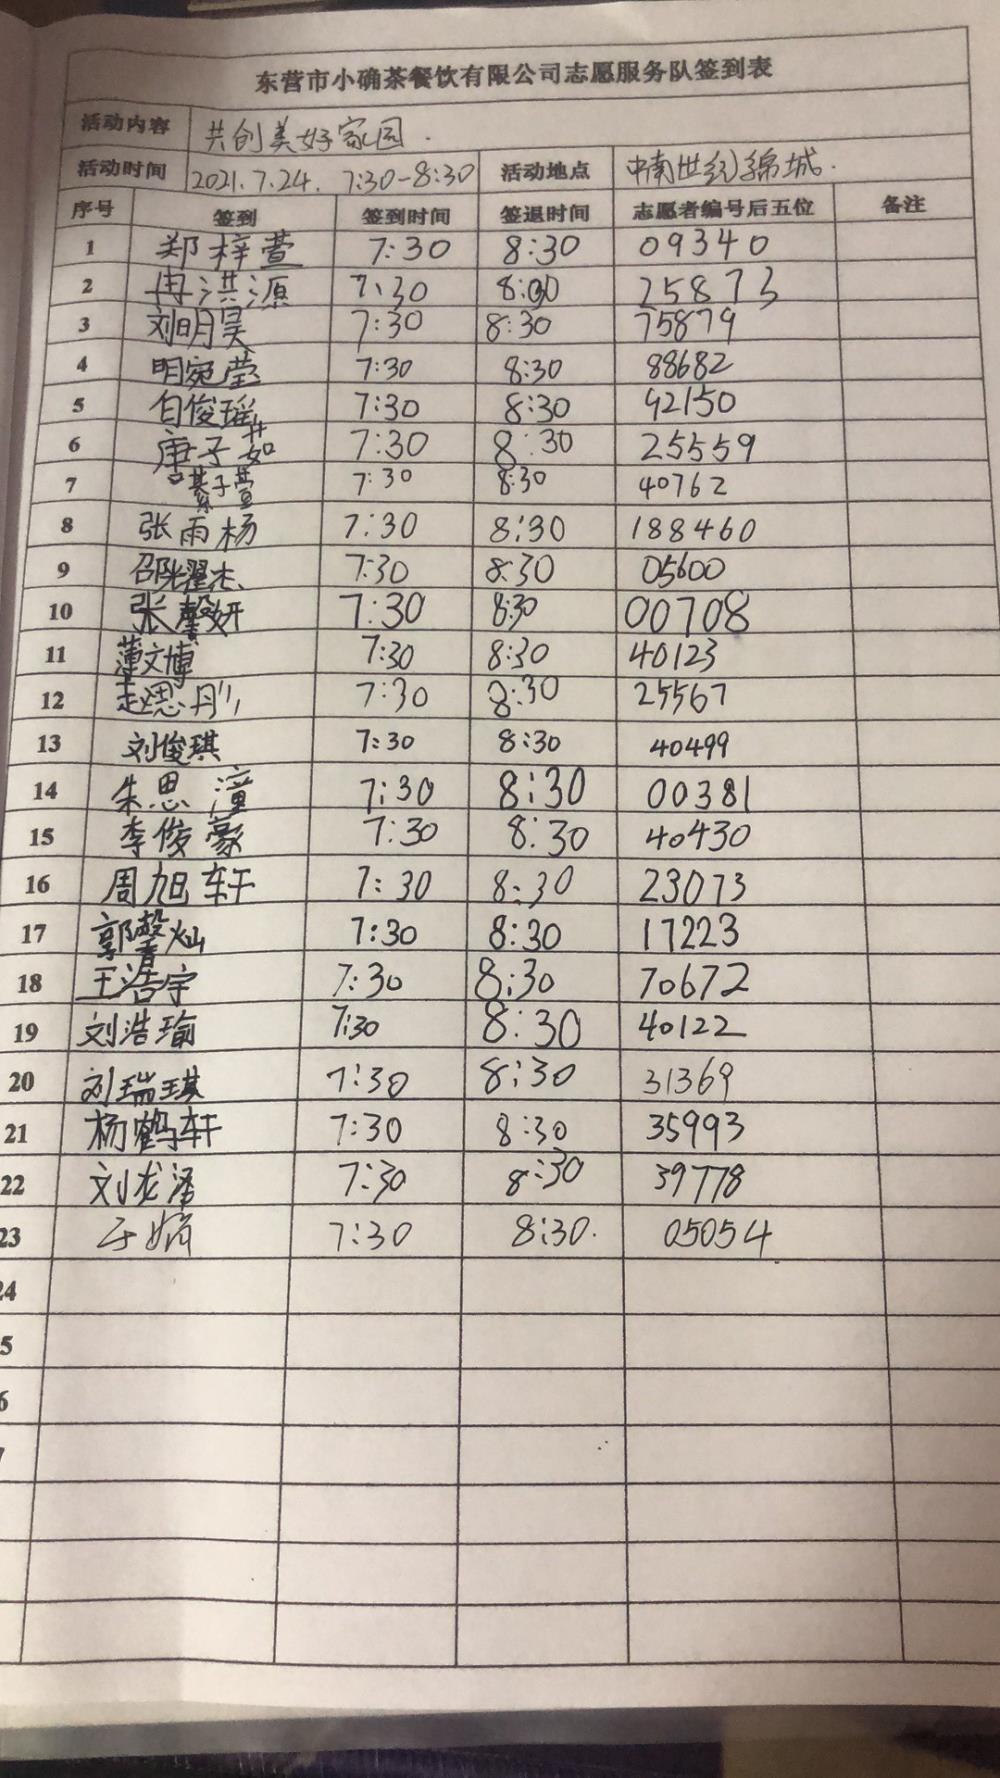 东营市小确茶餐饮有限公司志愿服务队签到表
活动内容 共创美好家园.
活动时间 2021.7.24. 7:30-8:30 活动地点 中南世纪锦城.
序号 签到 签到时间 签退时间 志愿者编号后五位 备注
1 郑梓萱 7:30 8:30 09340
2 冉洪源 7:30 8:30 25873
3 刘明昊 7:30 8:30 75879
4 明宛莹 7:30 8:30 88682
5 白俊瑶 7:30 8:30 92150
6 唐子茹 7:30 8:30 25559
7 綦子萱 7:30 8:30 40762
8 张雨杨 7:30 8:30 188460
9 邵耀杰 7:30 8:30 05600
10 张馨妍 7:30 8:30 00708
11 薄文博 7:30 8:30 40123
12 赵思彤 7:30 8:30 25567
13 刘俊琪 7:30 8:30 40499
14 朱思潼 7:30 8:30 00381
15 李俊豪 7:30 8:30 40430
16 周旭轩 7:30 8:30 23073
17 郭馨灿 7:30 8:30 17223
18 王浩宇 7:30 8:30 70672
19 刘浩瑜 7:30 8:30 40122
20 刘瑞琪 7:30 8:30 31369
21 杨鹤轩 7:30 8:30 35993
22 刘龙泽 7:30 8:30 39778
23 于 7:30 8:30. 05054
24
5
6
7